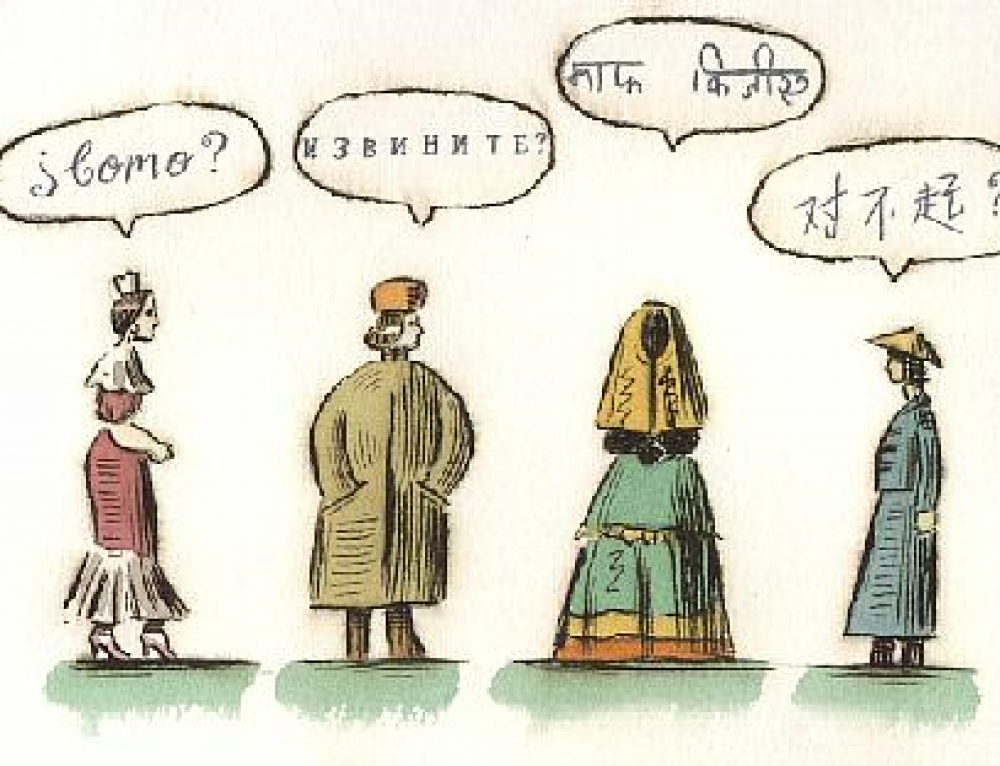 ¿Como?
ИЗВИНИТЕ?
माफ किजीए
对不起?